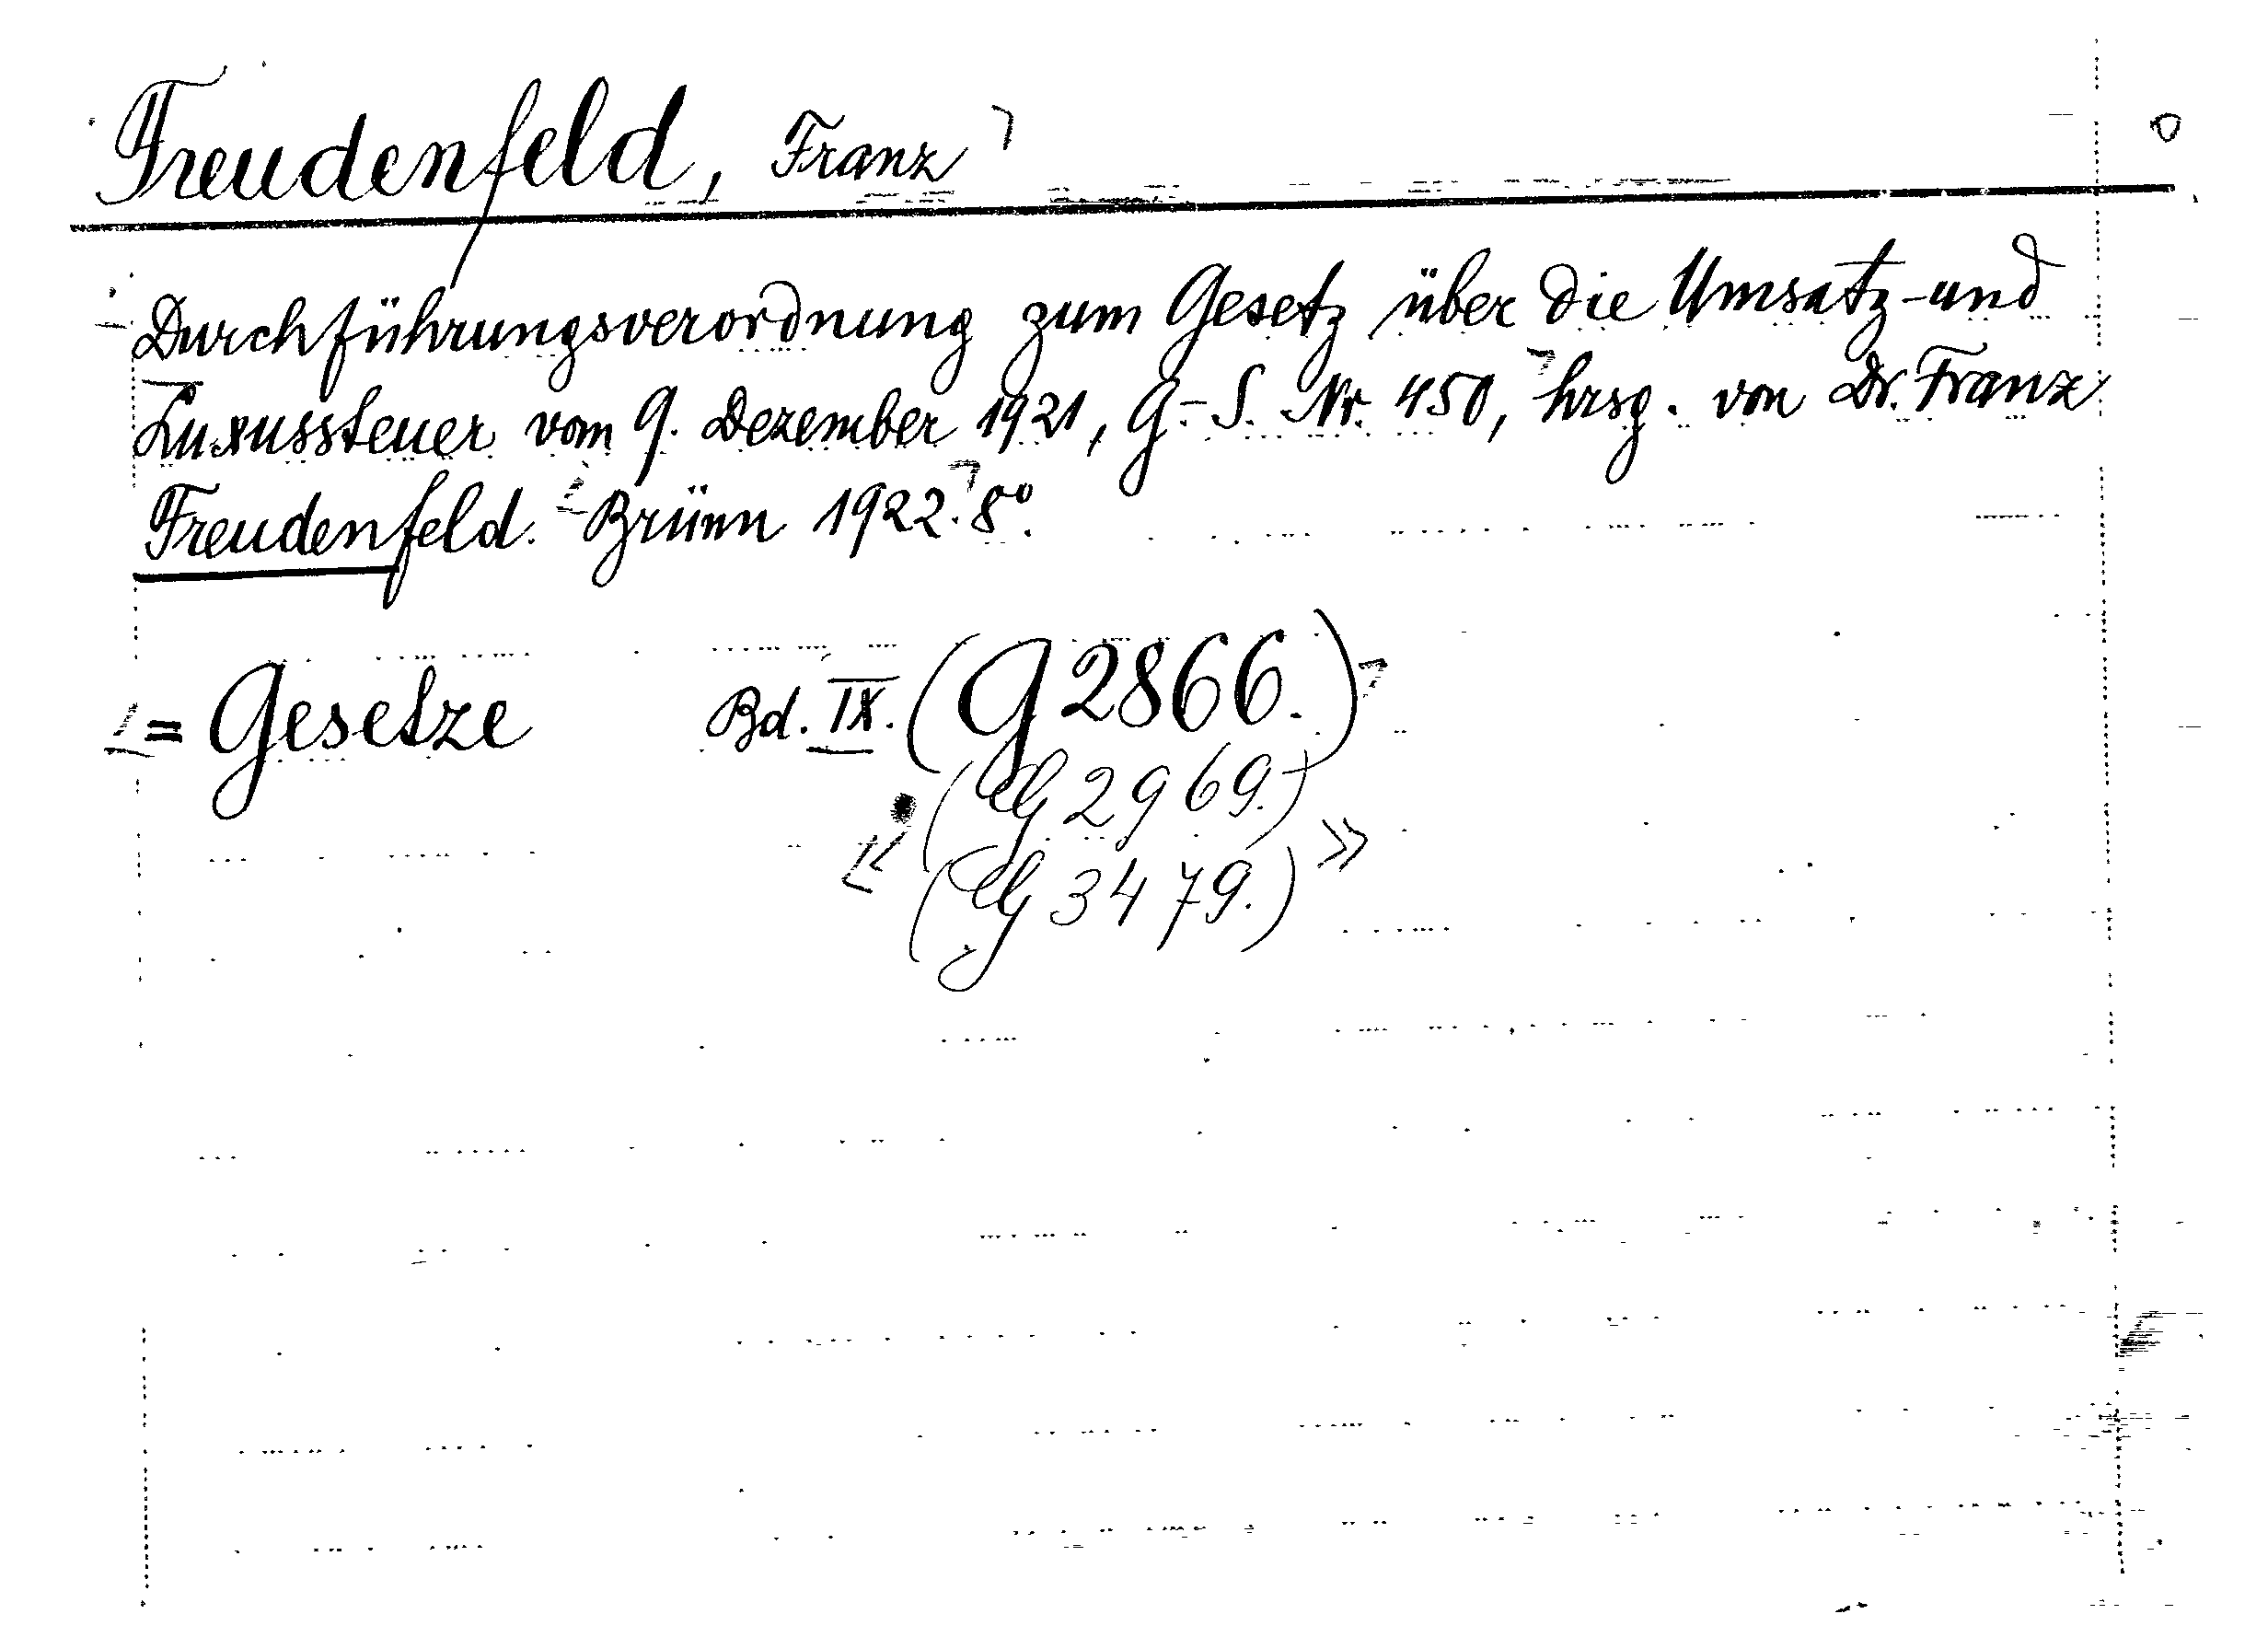 Freudenfeld, Franz
Durchführungsverordnung zum Gesetz über die Umsatz- und
Luxussteuer vom 9. Dezember 1921, G.-S. Nr. 450, hrsg. von Dr. Franz
Freudenfeld. Brünn 1922. 8°.
= Gesetze Bd. IX. (G 2866.)
(G 2969.)
(G 3479.)